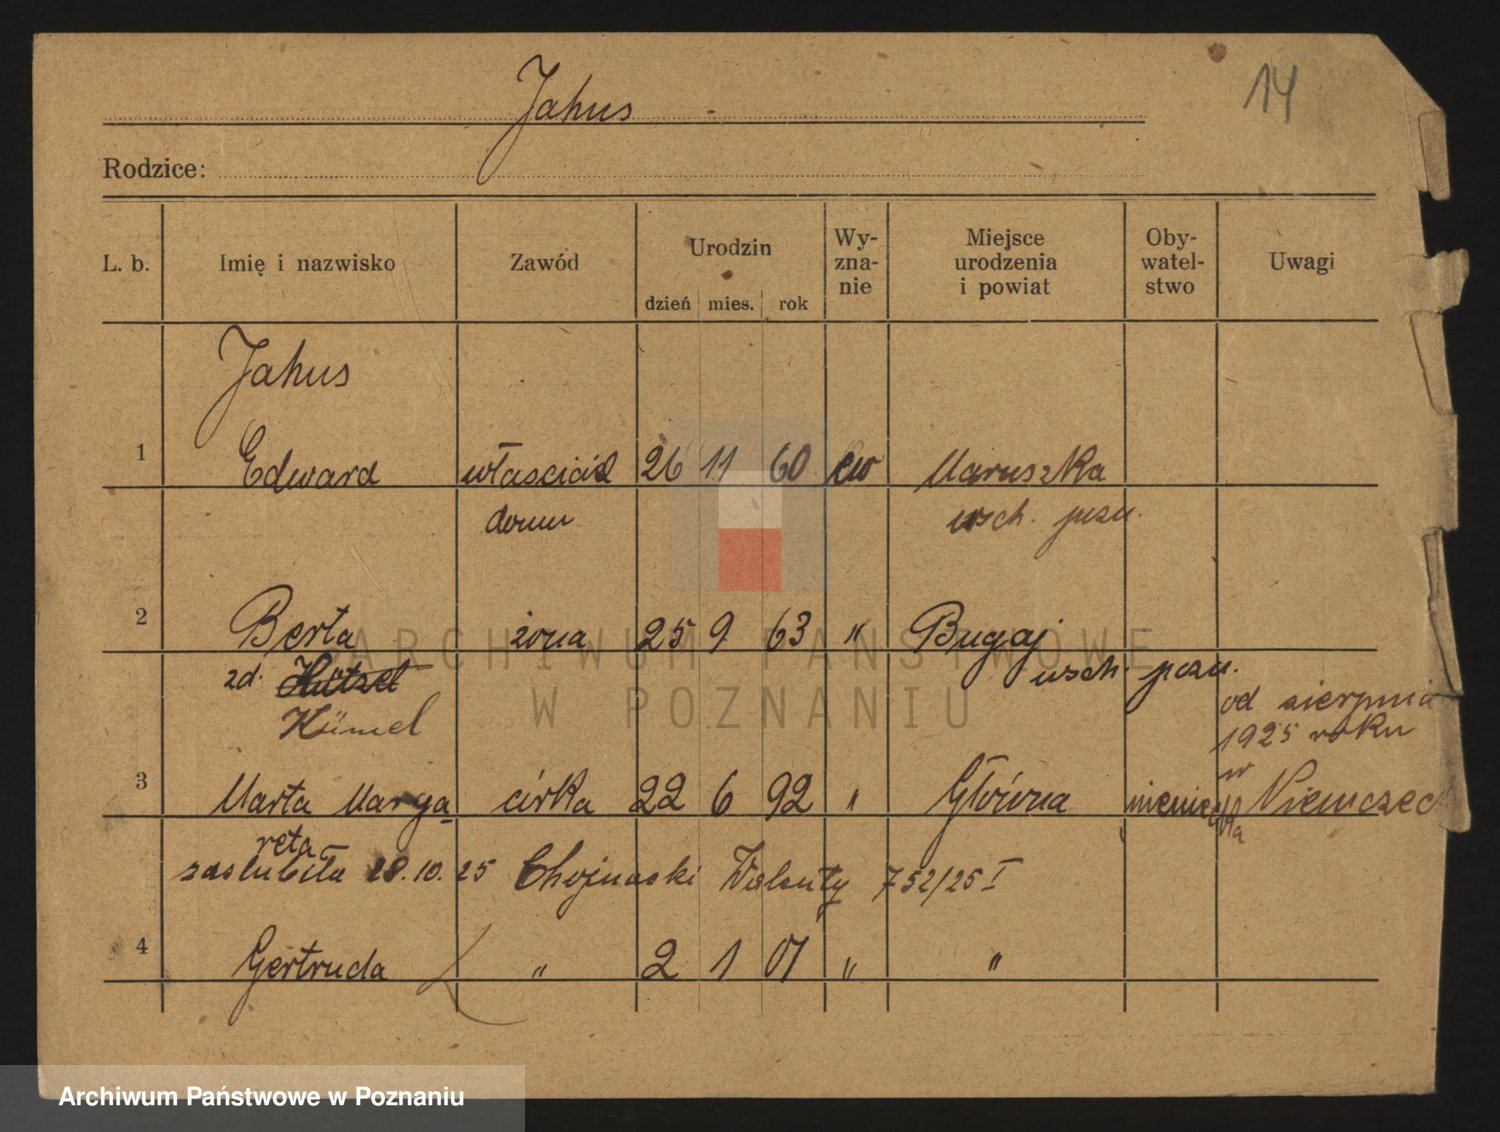 14
Jahus
Rodzice:
L. b. Imię i nazwisko Zawód Urodzin dzień mies. rok Wy-zna-nie Miejsce urodzenia i powiat Oby-watel-stwo Uwagi
Jahus
1 Edward właściciel 26 11 60 ew Maruszka
domu wsch. pzn.
2 Berta żona 25 9 63 " Bugaj
zd. wsch. pzn.
Hümel
od sierpnia
1925 roku
w
3 Marta Marga- córka 22 6 92 " Główna niemiecka Niemczech
reta
zaślubiła 28.10.25 Chojnacki Walenty 752/25 I
4 Gertruda " 2 1 01 " "
ARCHIWUM PAŃSTWOWE
W POZNANIU
Archiwum Państwowe w Poznaniu